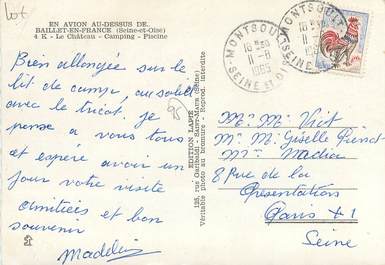 lot
EN AVION AU-DESSUS DE...
BAILLET-EN-FRANCE (Seine-et-Oise)
4 K - Le Château - Camping - Piscine
Bien allongée sur le
lit de camp, au soleil
avec le tricot. je
pense a vous tous
et espère avoir un
jour votre visite
amitiées et bon
souvenir
Madeleine
95
EDITION LAPIE
Véritable photo au bromure - Reprod. interdite
MONTSOULT
16 H
11-8
1965
SEINE ET OISE
MONTSOULT
SEINE ET OISE
Mr Mme
Mme Giselle
Mme Nadia
8 Rue de la
Présentation
Paris XI
Seine